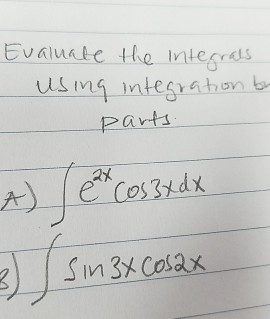 Evaluate the integrals
using integration by
parts.
A) ∫ e^2x cos3xdx
B) ∫ sin3xcos2x